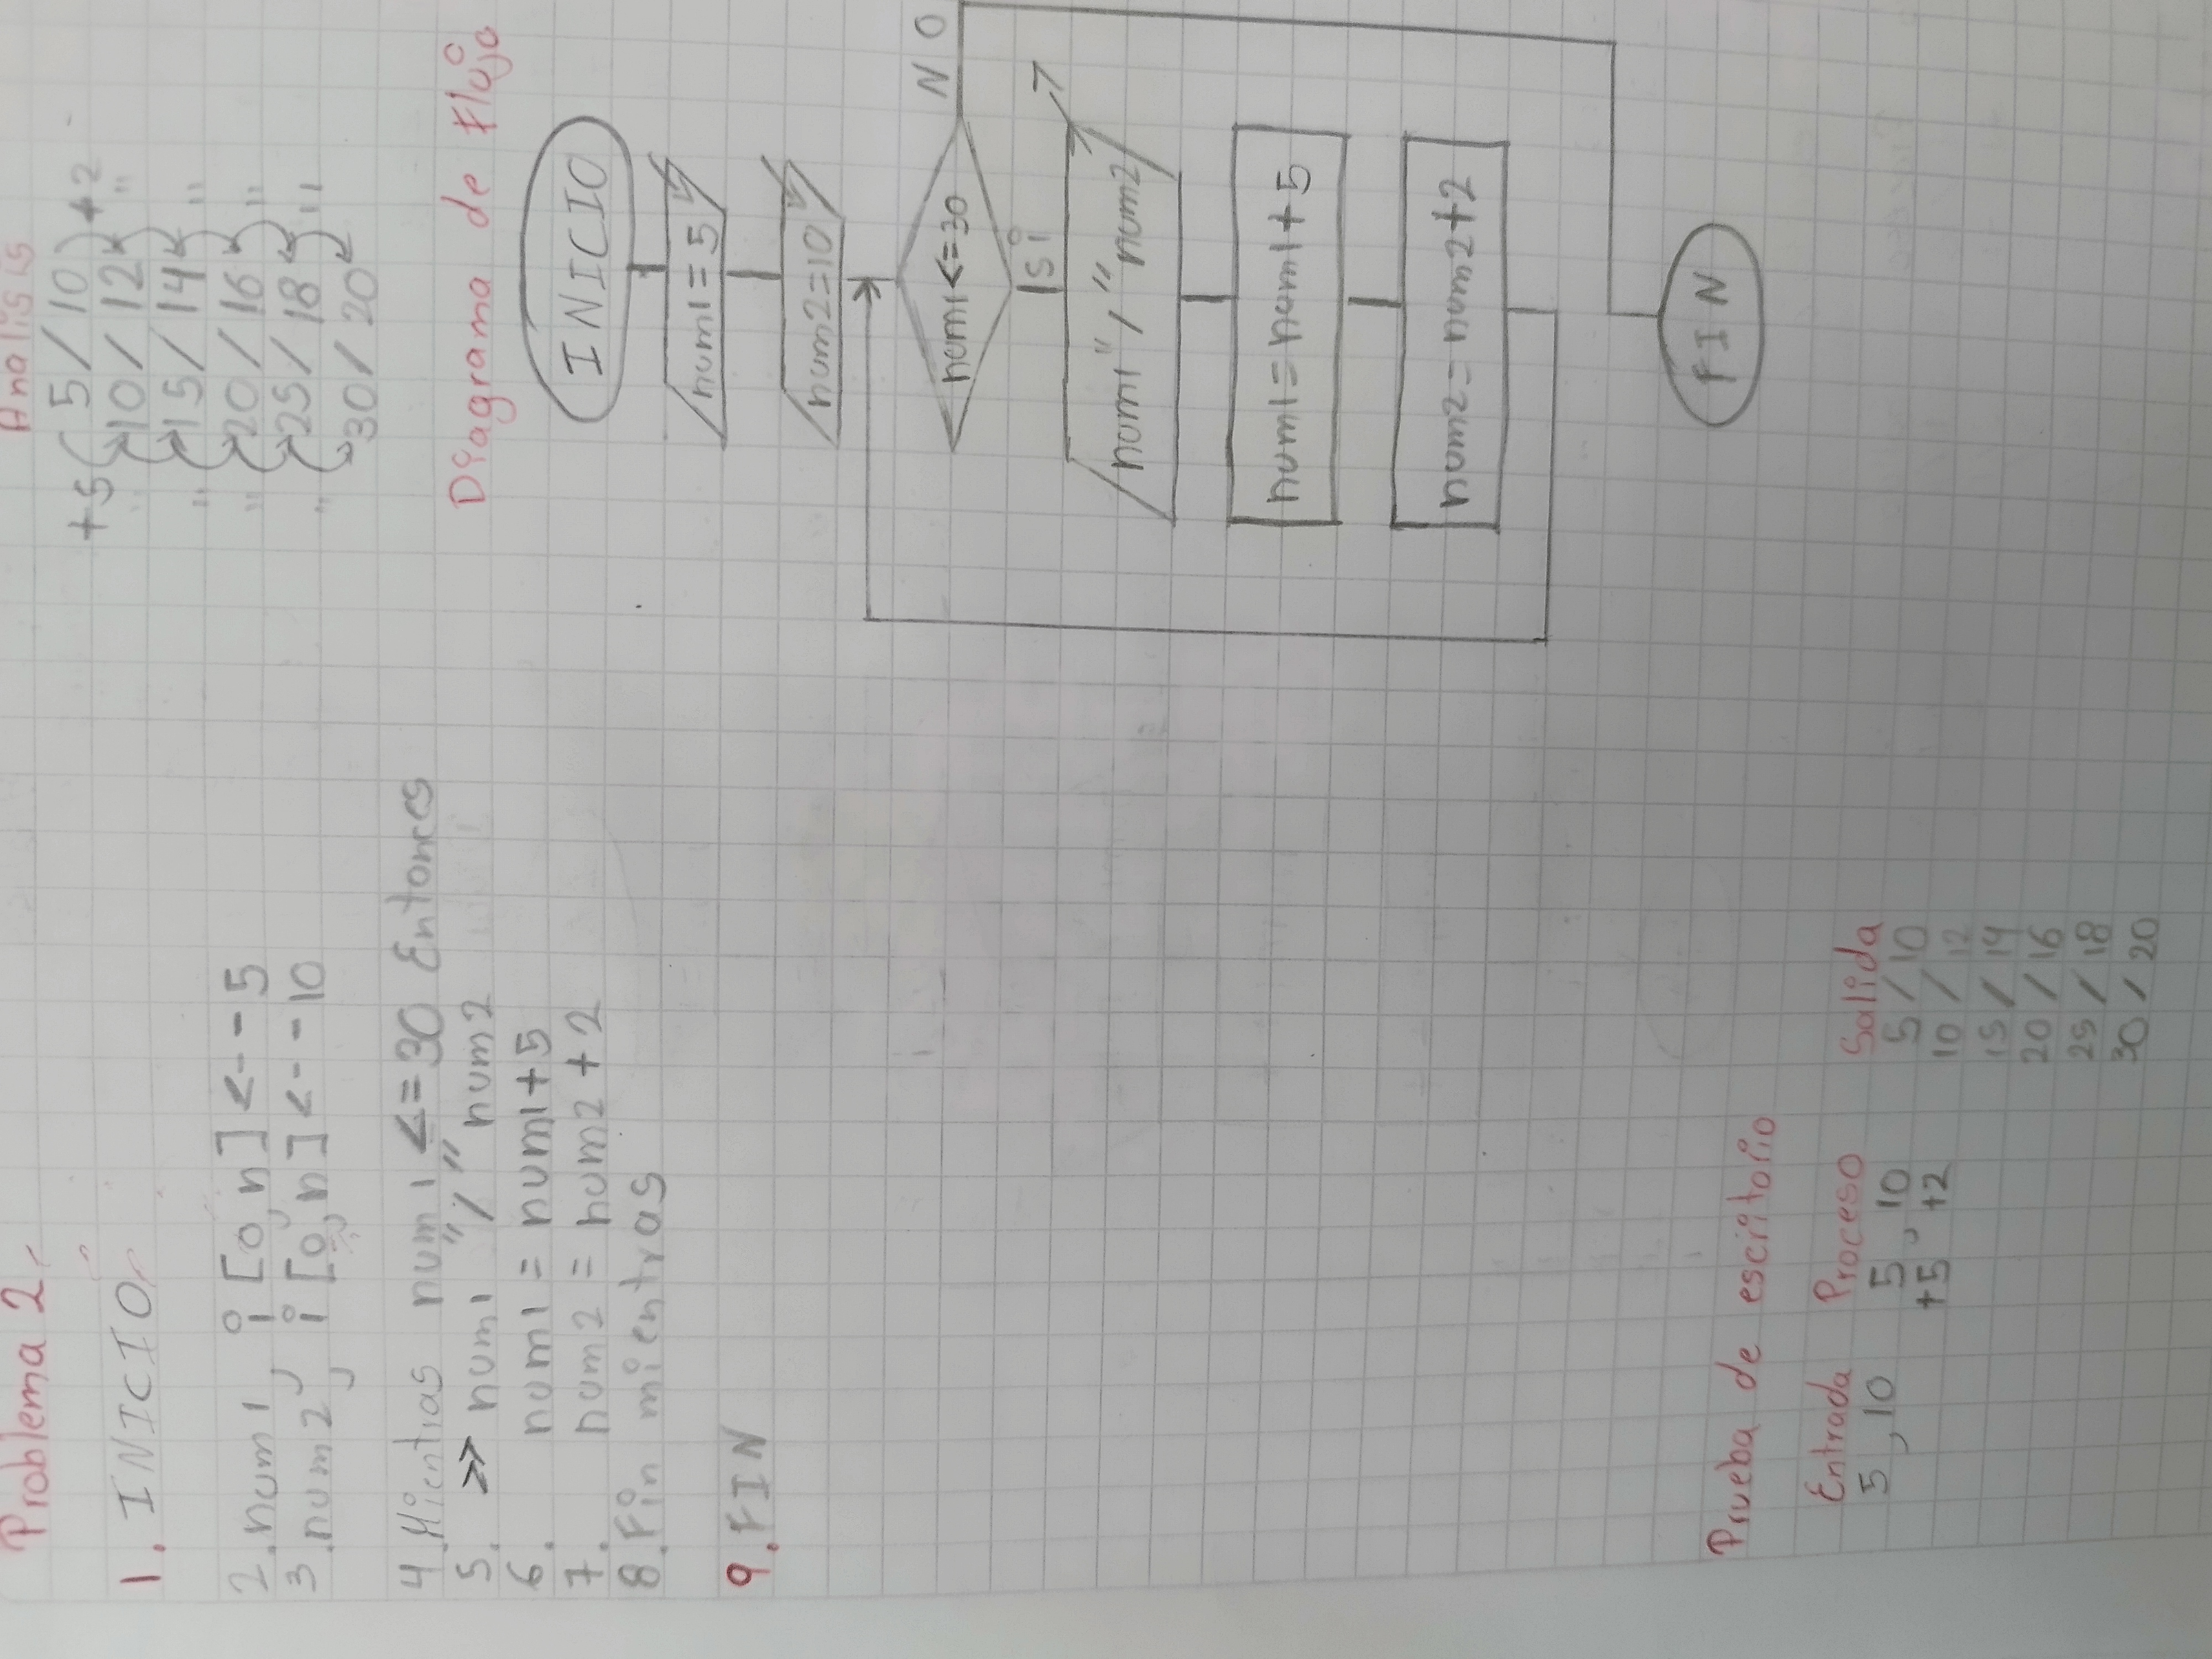 Problema 2
1. INICIO
2. num1, i [0,n] <-- 5
3. num2, i [0,n] <-- 10
4. Mientras num1 <= 30 Entonces
5. >> num1 "/" num2
6. num1 = num1+5
7. num2 = num2 +2
8. Fin mientras
9. FIN
Analisis
+5 5/10 +2
" 10/12 "
" 15/14 "
" 20/16 "
" 25/18 "
30/20
Diagrama de Flujo
INICIO
num1=5
num2=10
num1<=30 NO
si
num1"/"num2
num1=num1+5
num2=num2+2
FIN
Prueba de escritorio
Entrada Proceso Salida
5,10 5,10 5/10
+5 +2 10/12
15/14
20/16
25/18
30/20